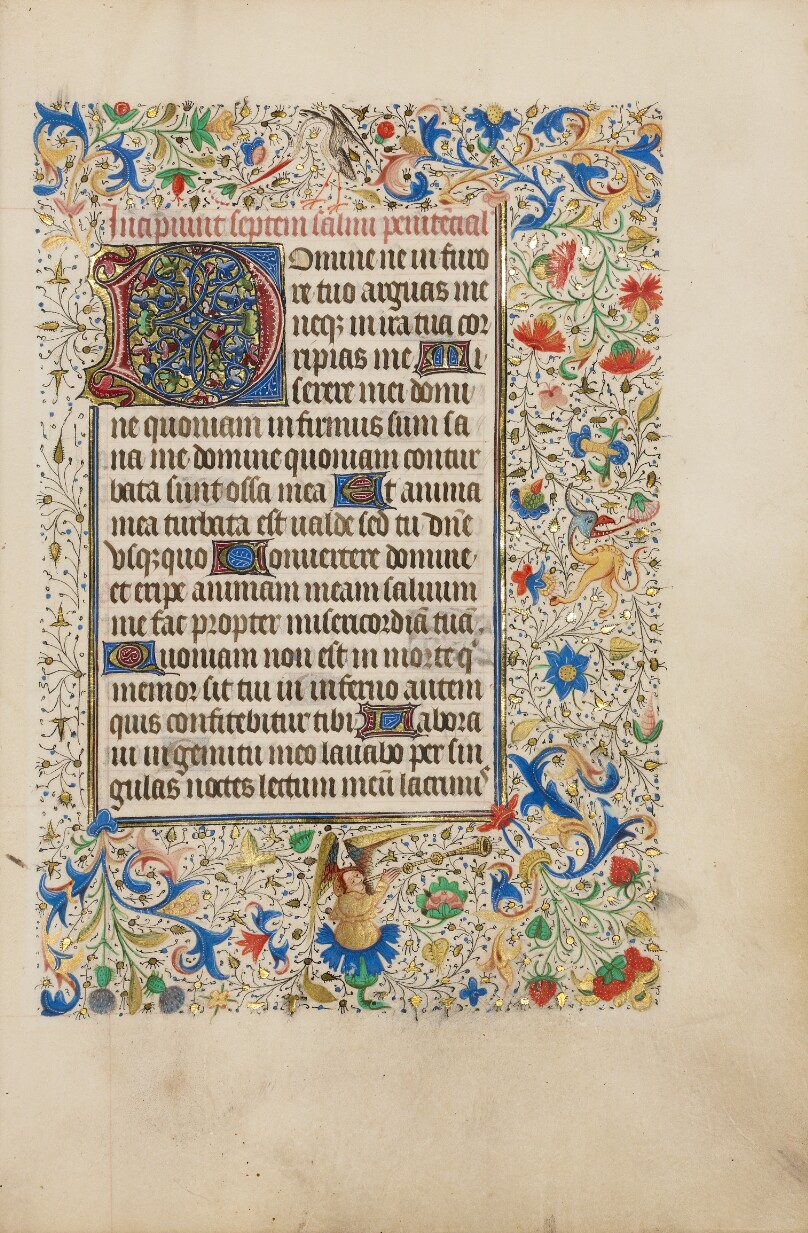 Incipiunt septem salmi penitecial
Domine ne in furo
re tuo arguas me
neqȝ in ira tua cor
ripias me Mi
serere mei domi
ne quoniam infirmus sum sa
na me domine quoniam contur
bata sunt ossa mea Et anima
mea turbata est ualde sed tu dn̄e
vsqȝ quo Conuertere domine
et eripe animam meam saluum
me fac propter misericordiā tuā.
Quoniam non est in morte q̇
memor sit tui in inferno autem
quis confitebitur tibi Labora
ui in gemitu meo lauabo per sin
gulas noctes lectum meū lacrimˢ